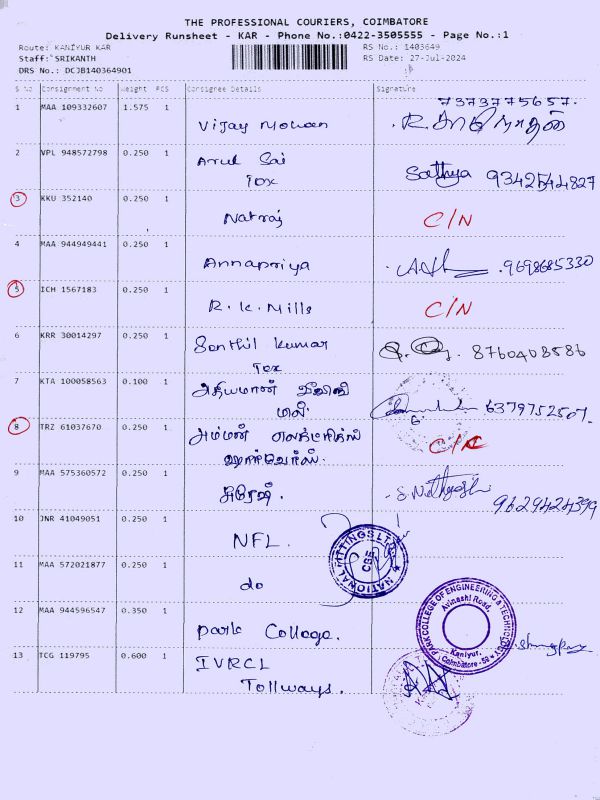 THE PROFESSIONAL COURIERS, COIMBATORE
Delivery Runsheet - KAR - Phone No.:0422-3505555 - Page No.:1
Route: KANIYUR KAR
RS No.: 1403649
Staff: SRIKANTH
RS Date: 27-Jul-2024
DRS No.: DCJB140364901
S No Consignment No Weight PCS Consignee Details Signature
7373775657.
1 MAA 109332607 1.575 1 Vijay Mohan
2 VPL 948572798 0.250 1 Arul Sai
Tex Sathya 9342544827
3 KKU 352140 0.250 1
Natraj C/N
4 MAA 944949441 0.250 1
Annapriya 9698685330
5 ICH 1567183 0.250 1
R. K. Mills C/N
6 KRR 30014297 0.250 1 Senthil Kumar
Tex 8760408586
7 KTA 100058563 0.100 1 அதியமான்
6379752507.
8 TRZ 61037670 0.250 1 அம்மன் எலக்ட்ரிக்கல்
ஹார்வேர்ஸ். C/N
9 MAA 575360572 0.250 1
சுரேஷ். 9629424399
10 JNR 41049051 0.250 1
NFL.
NATIONAL FITTINGS LTD.
CBE
11 MAA 572021877 0.250 1
do
12 MAA 944596547 0.350 1
Park College.
PARK COLLEGE OF ENGINEERING & TECHNOLOGY
Avinashi Road,
Kaniyur,
Coimbatore - 59
13 TCG 119795 0.600 1 IVRCL
Tollways.